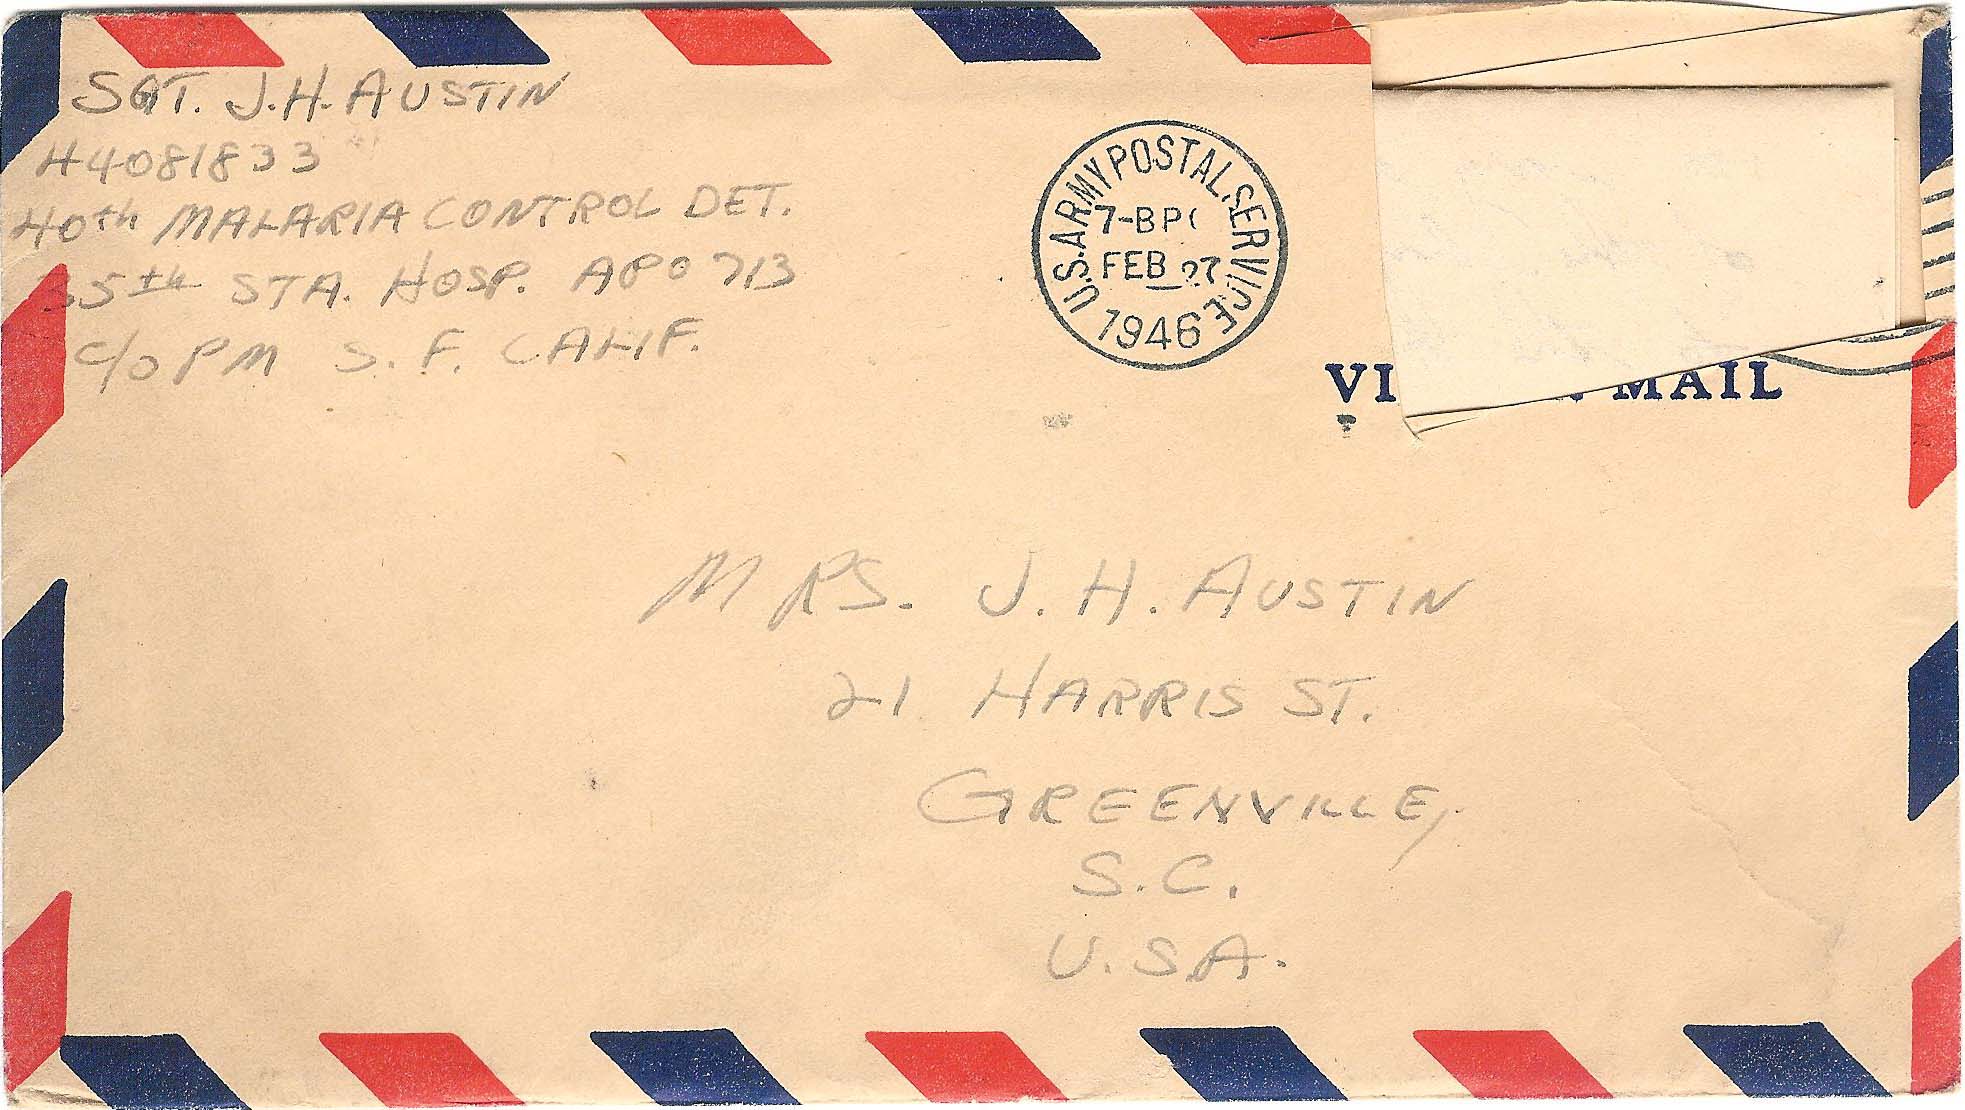 SGT. J.H. AUSTIN
44081833
40th MALARIA CONTROL DET.
35th STA. HOSP. APO 713
C/O PM S. F. CALIF.
U.S. ARMY POSTAL SERVICE
FEB 27
1946
MAIL
MRS. J. H. AUSTIN
21 HARRIS ST.
GREENVILLE,
S.C.
U.S.A.